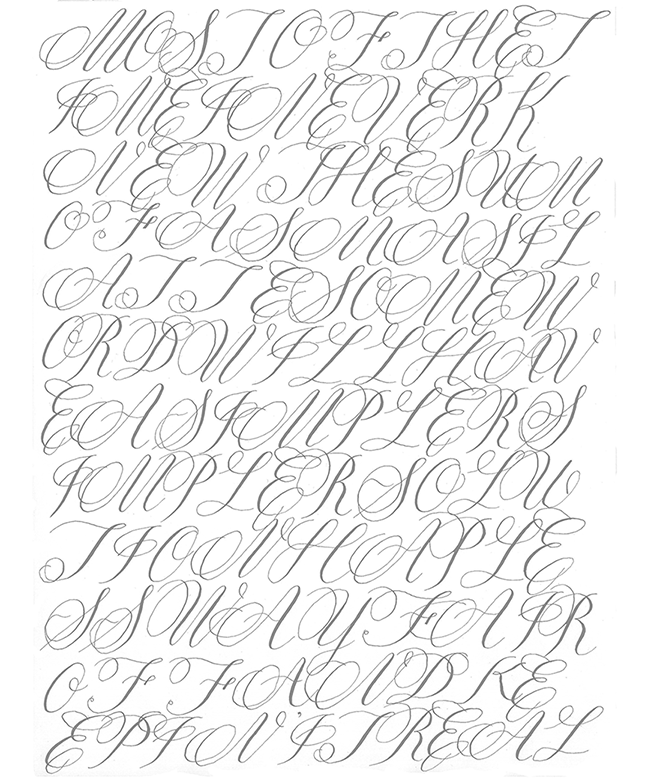 MOSTOFTHET
IMEINEVERK
NEWTHESUM
OFASONASIL
ATTESOMEW
ORDWILLHAV
EASIMPLERS
IMPLERSOLU
TIONHAPLE
SSWAYFAIR
OFFANDKE
EPIN'ITREAL